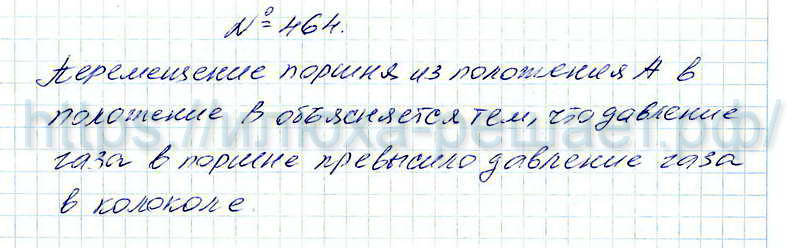 № 464.
Перемещение поршня из положения А в
положение В объясняется тем, что давление
https://итоха-решает.рф/
газа в поршне превысило давление газа
в колоколе.